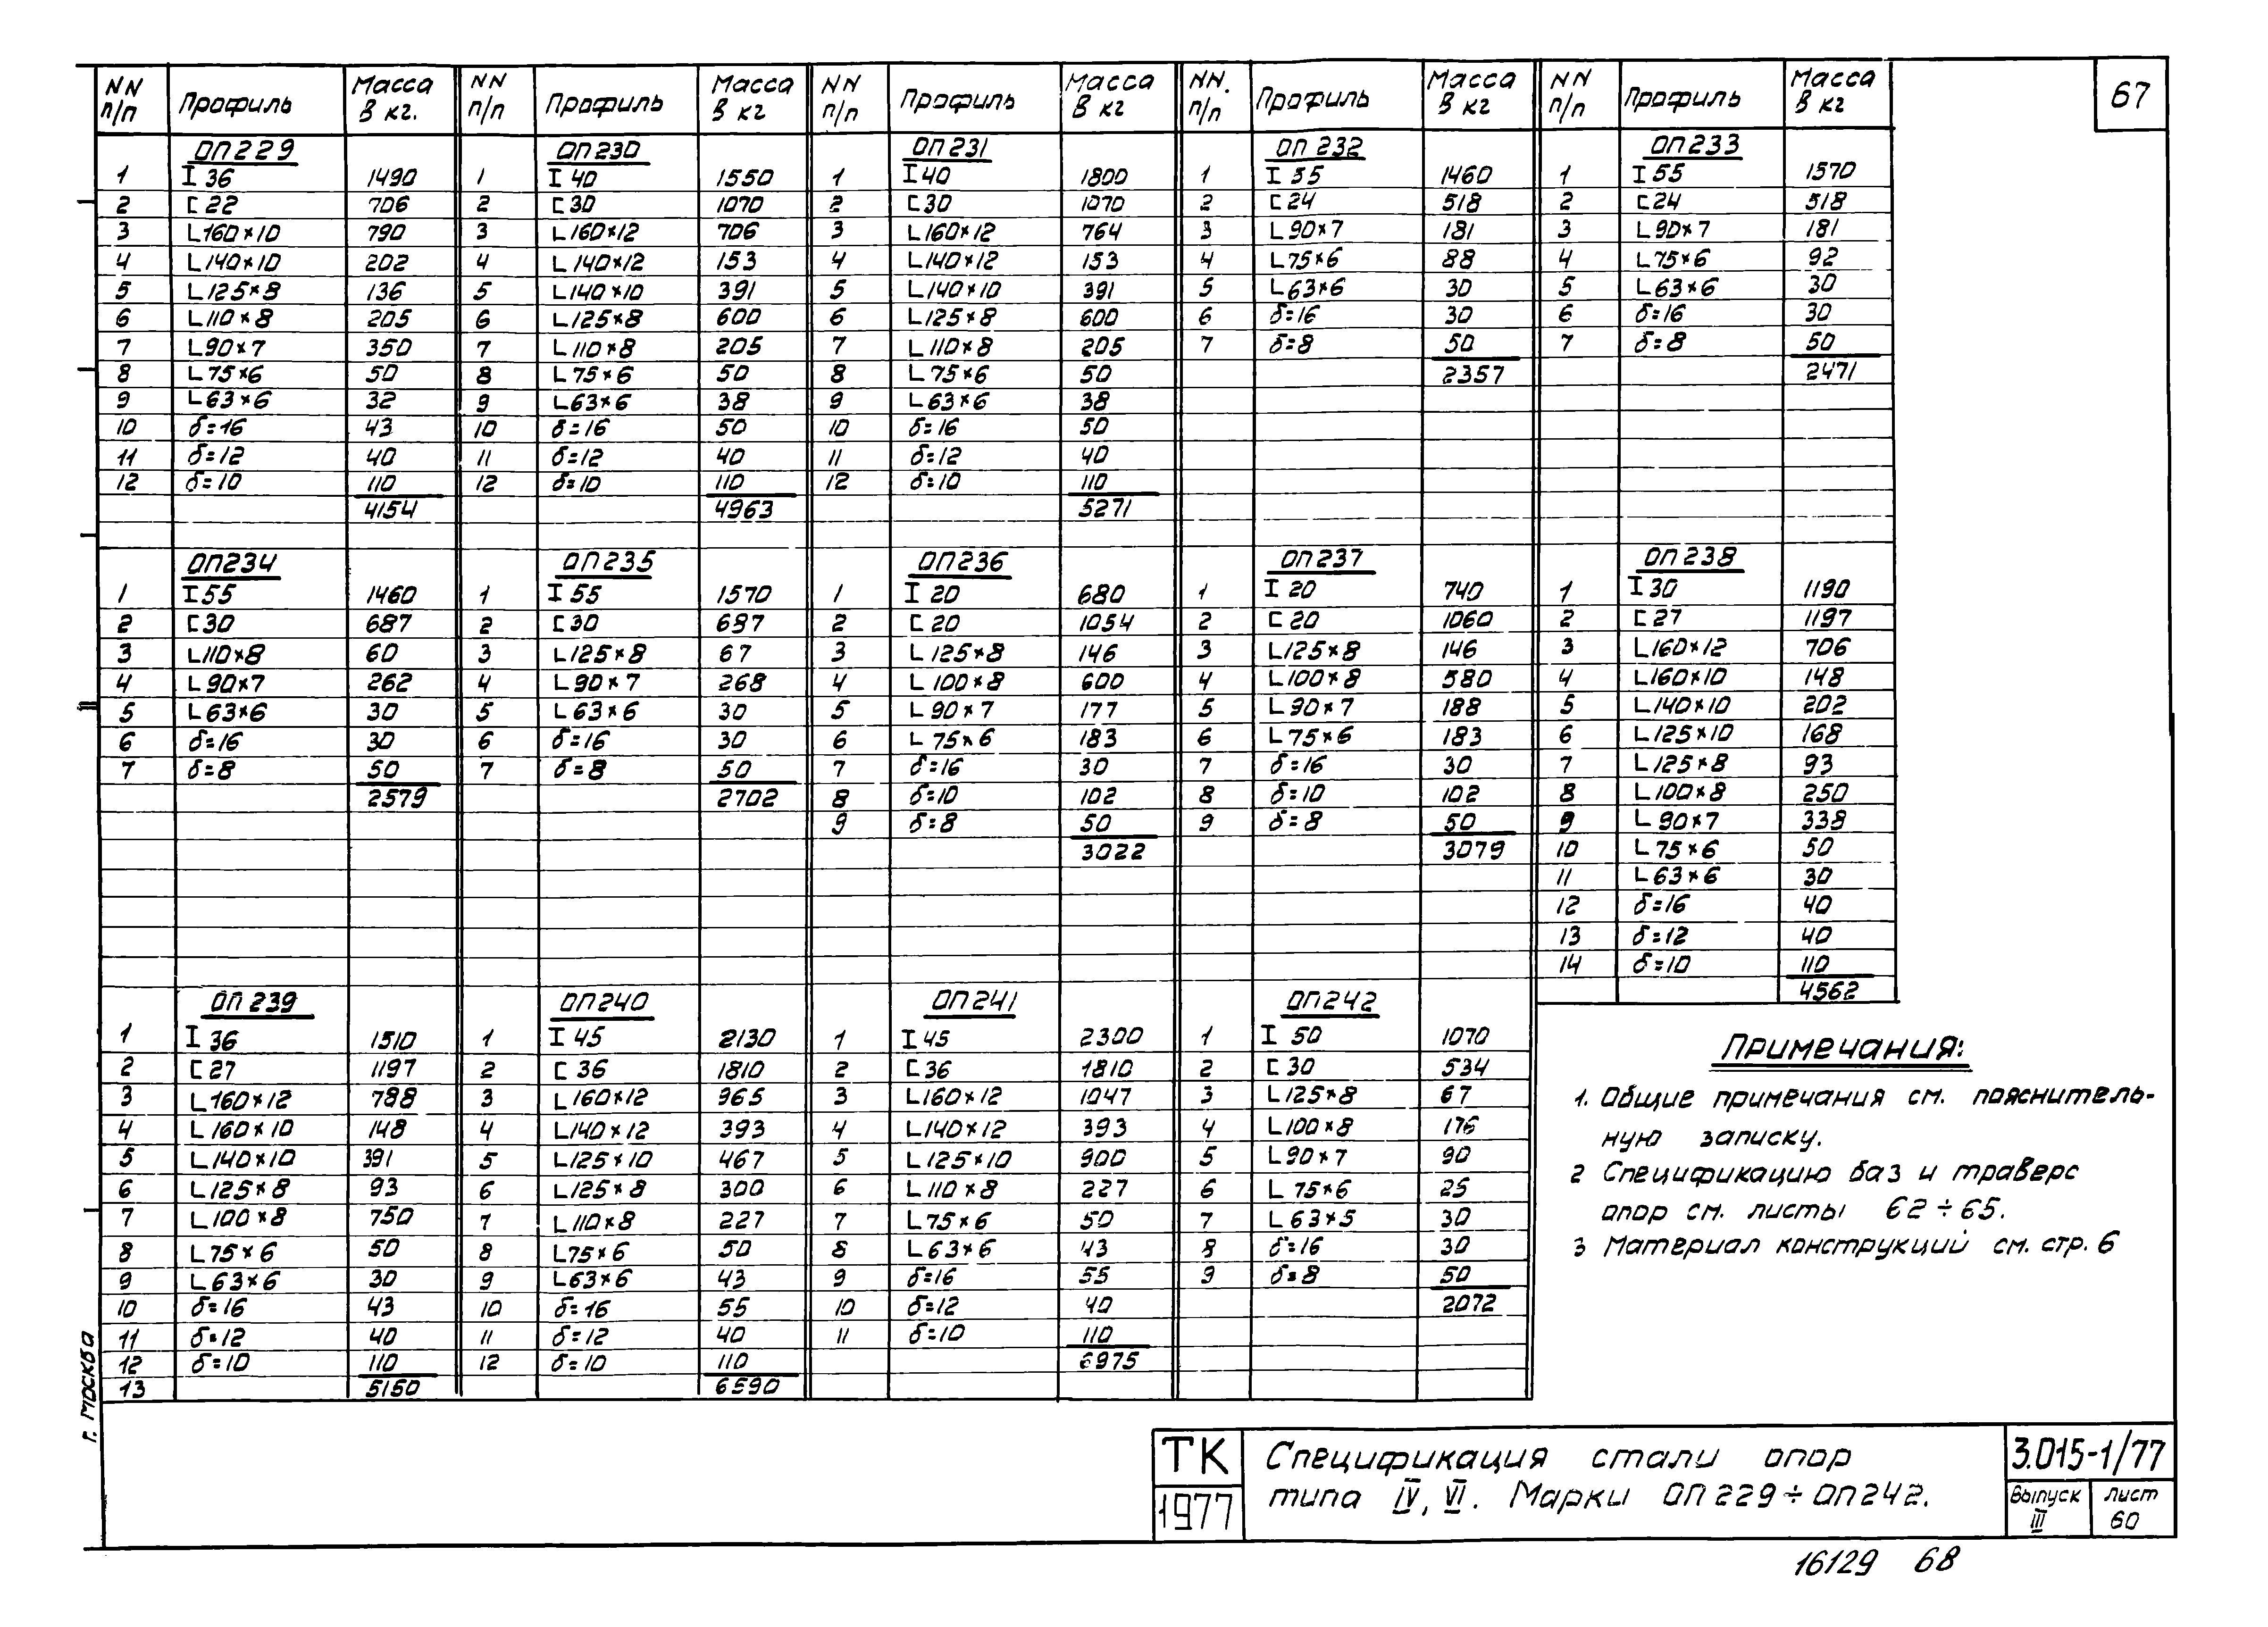 67
NN п/п Профиль Масса в кг. NN п/п Профиль Масса в кг NN п/п Профиль Масса в кг NN. п/п Профиль Масса в кг NN п/п Профиль Масса в кг
ОП229 ОП230 ОП231 ОП232 ОП233
1 I 36 1490 1 I 40 1550 1 I 40 1800 1 I 55 1460 1 I 55 1570
2 [ 22 706 2 [ 30 1070 2 [ 30 1070 2 [ 24 518 2 [ 24 518
3 L160×10 790 3 L160×12 706 3 L160×12 764 3 L90×7 181 3 L90×7 181
4 L140×10 202 4 L140×12 153 4 L140×12 153 4 L75×6 88 4 L75×6 92
5 L125×8 136 5 L140×10 391 5 L140×10 391 5 L63×6 30 5 L63×6 30
6 L110×8 205 6 L125×8 600 6 L125×8 600 6 δ=16 30 6 δ=16 30
7 L90×7 350 7 L110×8 205 7 L110×8 205 7 δ=8 50 7 δ=8 50
8 L75×6 50 8 L75×6 50 8 L75×6 50 2357 2471
9 L63×6 32 9 L63×6 38 9 L63×6 38
10 δ=16 43 10 δ=16 50 10 δ=16 50
11 δ=12 40 11 δ=12 40 11 δ=12 40
12 δ=10 110 12 δ=10 110 12 δ=10 110
4154 4963 5271
ОП234 ОП235 ОП236 ОП237 ОП238
1 I 55 1460 1 I 55 1570 1 I 20 680 1 I 20 740 1 I 30 1190
2 [ 30 687 2 [ 30 687 2 [ 20 1054 2 [ 20 1060 2 [ 27 1197
3 L110×8 60 3 L125×8 67 3 L125×8 146 3 L125×8 146 3 L160×12 706
4 L90×7 262 4 L90×7 268 4 L100×8 600 4 L100×8 580 4 L160×10 148
5 L63×6 30 5 L63×6 30 5 L90×7 177 5 L90×7 188 5 L140×10 202
6 δ=16 30 6 δ=16 30 6 L75×6 183 6 L75×6 183 6 L125×10 168
7 δ=8 50 7 δ=8 50 7 δ=16 30 7 δ=16 30 7 L125×8 93
2579 2702 8 δ=10 102 8 δ=10 102 8 L100×8 250
9 δ=8 50 9 δ=8 50 9 L90×7 338
3022 3079 10 L75×6 50
11 L63×6 30
12 δ=16 40
13 δ=12 40
14 δ=10 110
4562
ОП239 ОП240 ОП241 ОП242
1 I 36 1510 1 I 45 2130 1 I 45 2300 1 I 50 1070
2 [ 27 1197 2 [ 36 1810 2 [ 36 1810 2 [ 30 534
3 L160×12 788 3 L160×12 965 3 L160×12 1047 3 L125×8 67
4 L160×10 148 4 L140×12 393 4 L140×12 393 4 L100×8 176
5 L140×10 391 5 L125×10 467 5 L125×10 900 5 L90×7 90
6 L125×8 93 6 L125×8 300 6 L110×8 227 6 L75×6 25
7 L100×8 750 7 L110×8 227 7 L75×6 50 7 L63×5 30
8 L75×6 50 8 L75×6 50 8 L63×6 43 8 δ=16 30
9 L63×6 30 9 L63×6 43 9 δ=16 55 9 δ=8 50
10 δ=16 43 10 δ=16 55 10 δ=12 40 2072
11 δ=12 40 11 δ=12 40 11 δ=10 110
12 δ=10 110 12 δ=10 110 6975
13 5150 6590
Примечания:
1. Общие примечания см. пояснитель-
ную записку.
2 Спецификацию баз и траверс
опор см. листы 62÷65.
3 Материал конструкций см. стр. 6
г. Москва
ТК
1977
Спецификация стали опор
типа IV, VI. Марки ОП229÷ОП242.
3.015-1/77
Выпуск III
Лист 60
16129 68